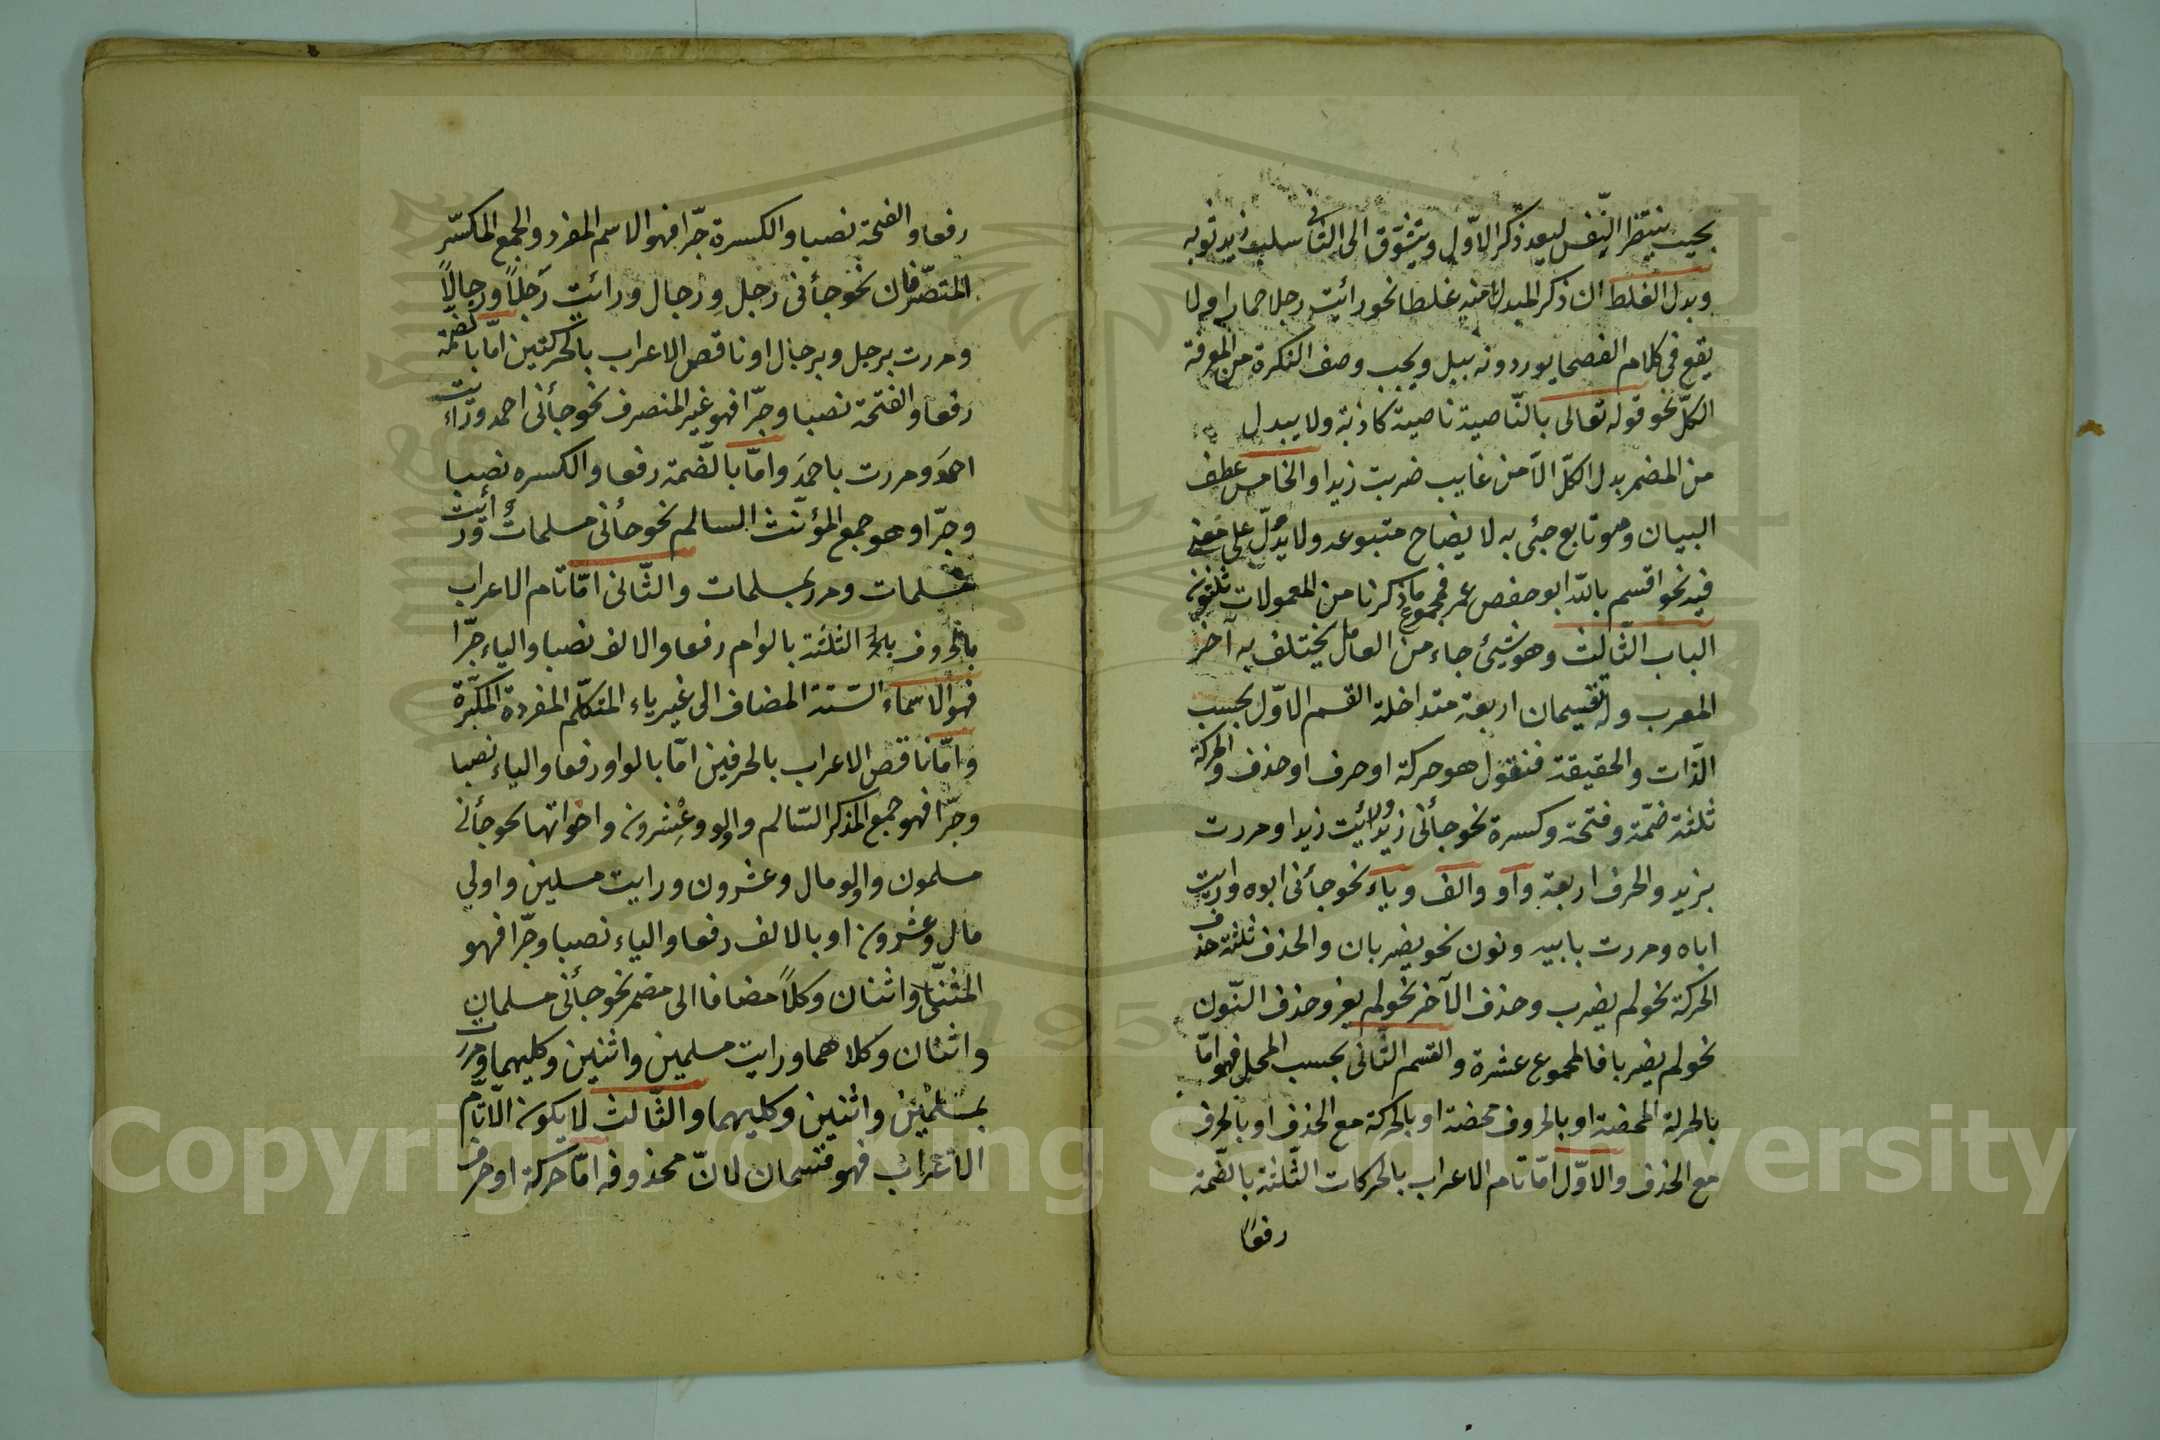 بحيث ينتظر النّفس لبعد ذكر الاوّل ويتشوّق الى الثّانى سلب زيد ثوبه
وبدل الغلط ان ذكر المبدل منه غلطا نحو رائيت رجلا حمارا ولا
يقع فى كلام الفصحا يوردونه ببل ويجب وصف النكرة من المعرفة
الكلّ نحو قوله تعالى بالنّاصية ناصية كاذبة ولا يبدل
من المضمر بدل الكلّ الّا من غايب ضربت زيدا والخامس عطف
البيان وهو تابع جئ به لايضاح متبوعه ولا يدلّ على معنى
فيه نحو اقسم بالله ابو حفص عمر فمجموع ما ذكرنا من المعمولات ثلثون
الباب الثّالث وهو شئ جاء من العامل يختلف به آخر
المعرب وله تقسيمان اربعة متداخلة القسم الاوّل بحسب
الذّات والحقيقة فنقول هو حركة او حرف او حذف والحركة
ثلثة ضمّة وفتحة وكسرة نحو جأنى زيد ورائيت زيدا ومررت
بزيد والحرف اربعة واو والف وياء نحو جأنى ابوه ورايت
اباه ومررت بابيه ونون نحو يضربان والحذف ثلثة حذف
الحركة نحو لم يضرب وحذف الآخر نحو لم يغز وحذف النّون
نحو لم يضربا فالمجموع عشرة والقسم الثّانى بحسب المحل فهو امّا
بالحركة المحضة او بالحروف محضة او بالحركة مع الحذف او بالحرف
مع الحذف والاوّل امّا تام الاعراب بالحركات الثّلثة بالضّمة
رفعًا
رفعا والفتحة نصبا والكسرة جرّا فهو الاسم المفرد والجمع المكسّر
المتصرّفان نحو جأنى رجل ورجال ورائيت رجلًا ورجالًا
ومررت برجل وبرجال او ناقص الاعراب بالحركتين امّا بالضمّة
رفعا والفتحة نصبا وجرّا فهو غير المنصرف نحو جأنى احمد ورائيت
احمدَ ومررت باحمدَ وامّا بالضّمة رفعا والكسره نصبا
وجرّا وهو جمع المؤنّث السالم نحو جأنى مسلماتٌ ورأيت
مسلمات ومرر بمسلمات والثّانى امّا تام الاعراب
بالحروف الثلثة بالوام رفعا والالف نصبا والياء جرّا
فهو الاسماء السّتة المضاف الى غير ياء المتكلّم المفردة المكبّرة
وامّا ناقص الاعراب بالحرفين امّا بالواو رفعا والياء نصبا
وجرّا فهو جمع المذكر السّالم واولو وعِشرون واخواتها نحو جأنى
مسلمون واولو مال وعشرون ورايت مسلين واولي
مال وعشرون او بالالف رفعا والياء نصبا وجرّا فهو
المثنّى واثنان وكلاً مضافا الى مضمر نحو جأنى مسلمان
واثنان وكلاهما ورايت مسلمين واثنين وكليهما ومررت
بمسلمين واثنين وكليهما والثّالث لا يكون الّا تامّ
الاعراب فهو قسمان لانّ محذوفه امّا حركة او حرف
1957
Copyright © King Saud University